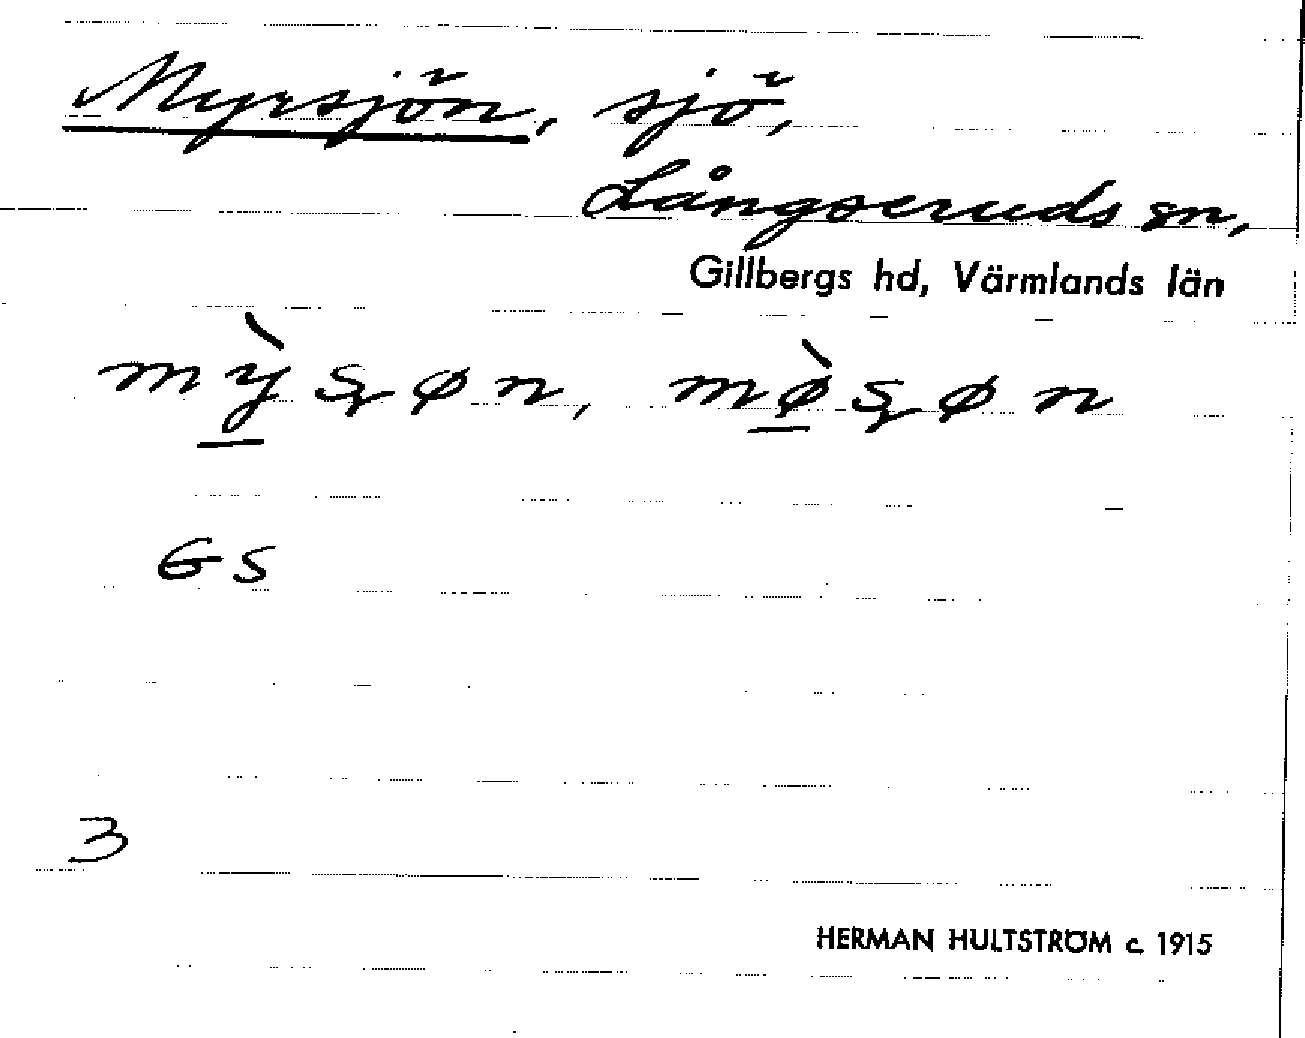 Myrsjön, sjö,
Långseruds sn,
Gillbergs hd, Värmlands län
mỳʂøn, mø̀ʂøn
GS
3
HERMAN HULTSTRÖM c. 1915